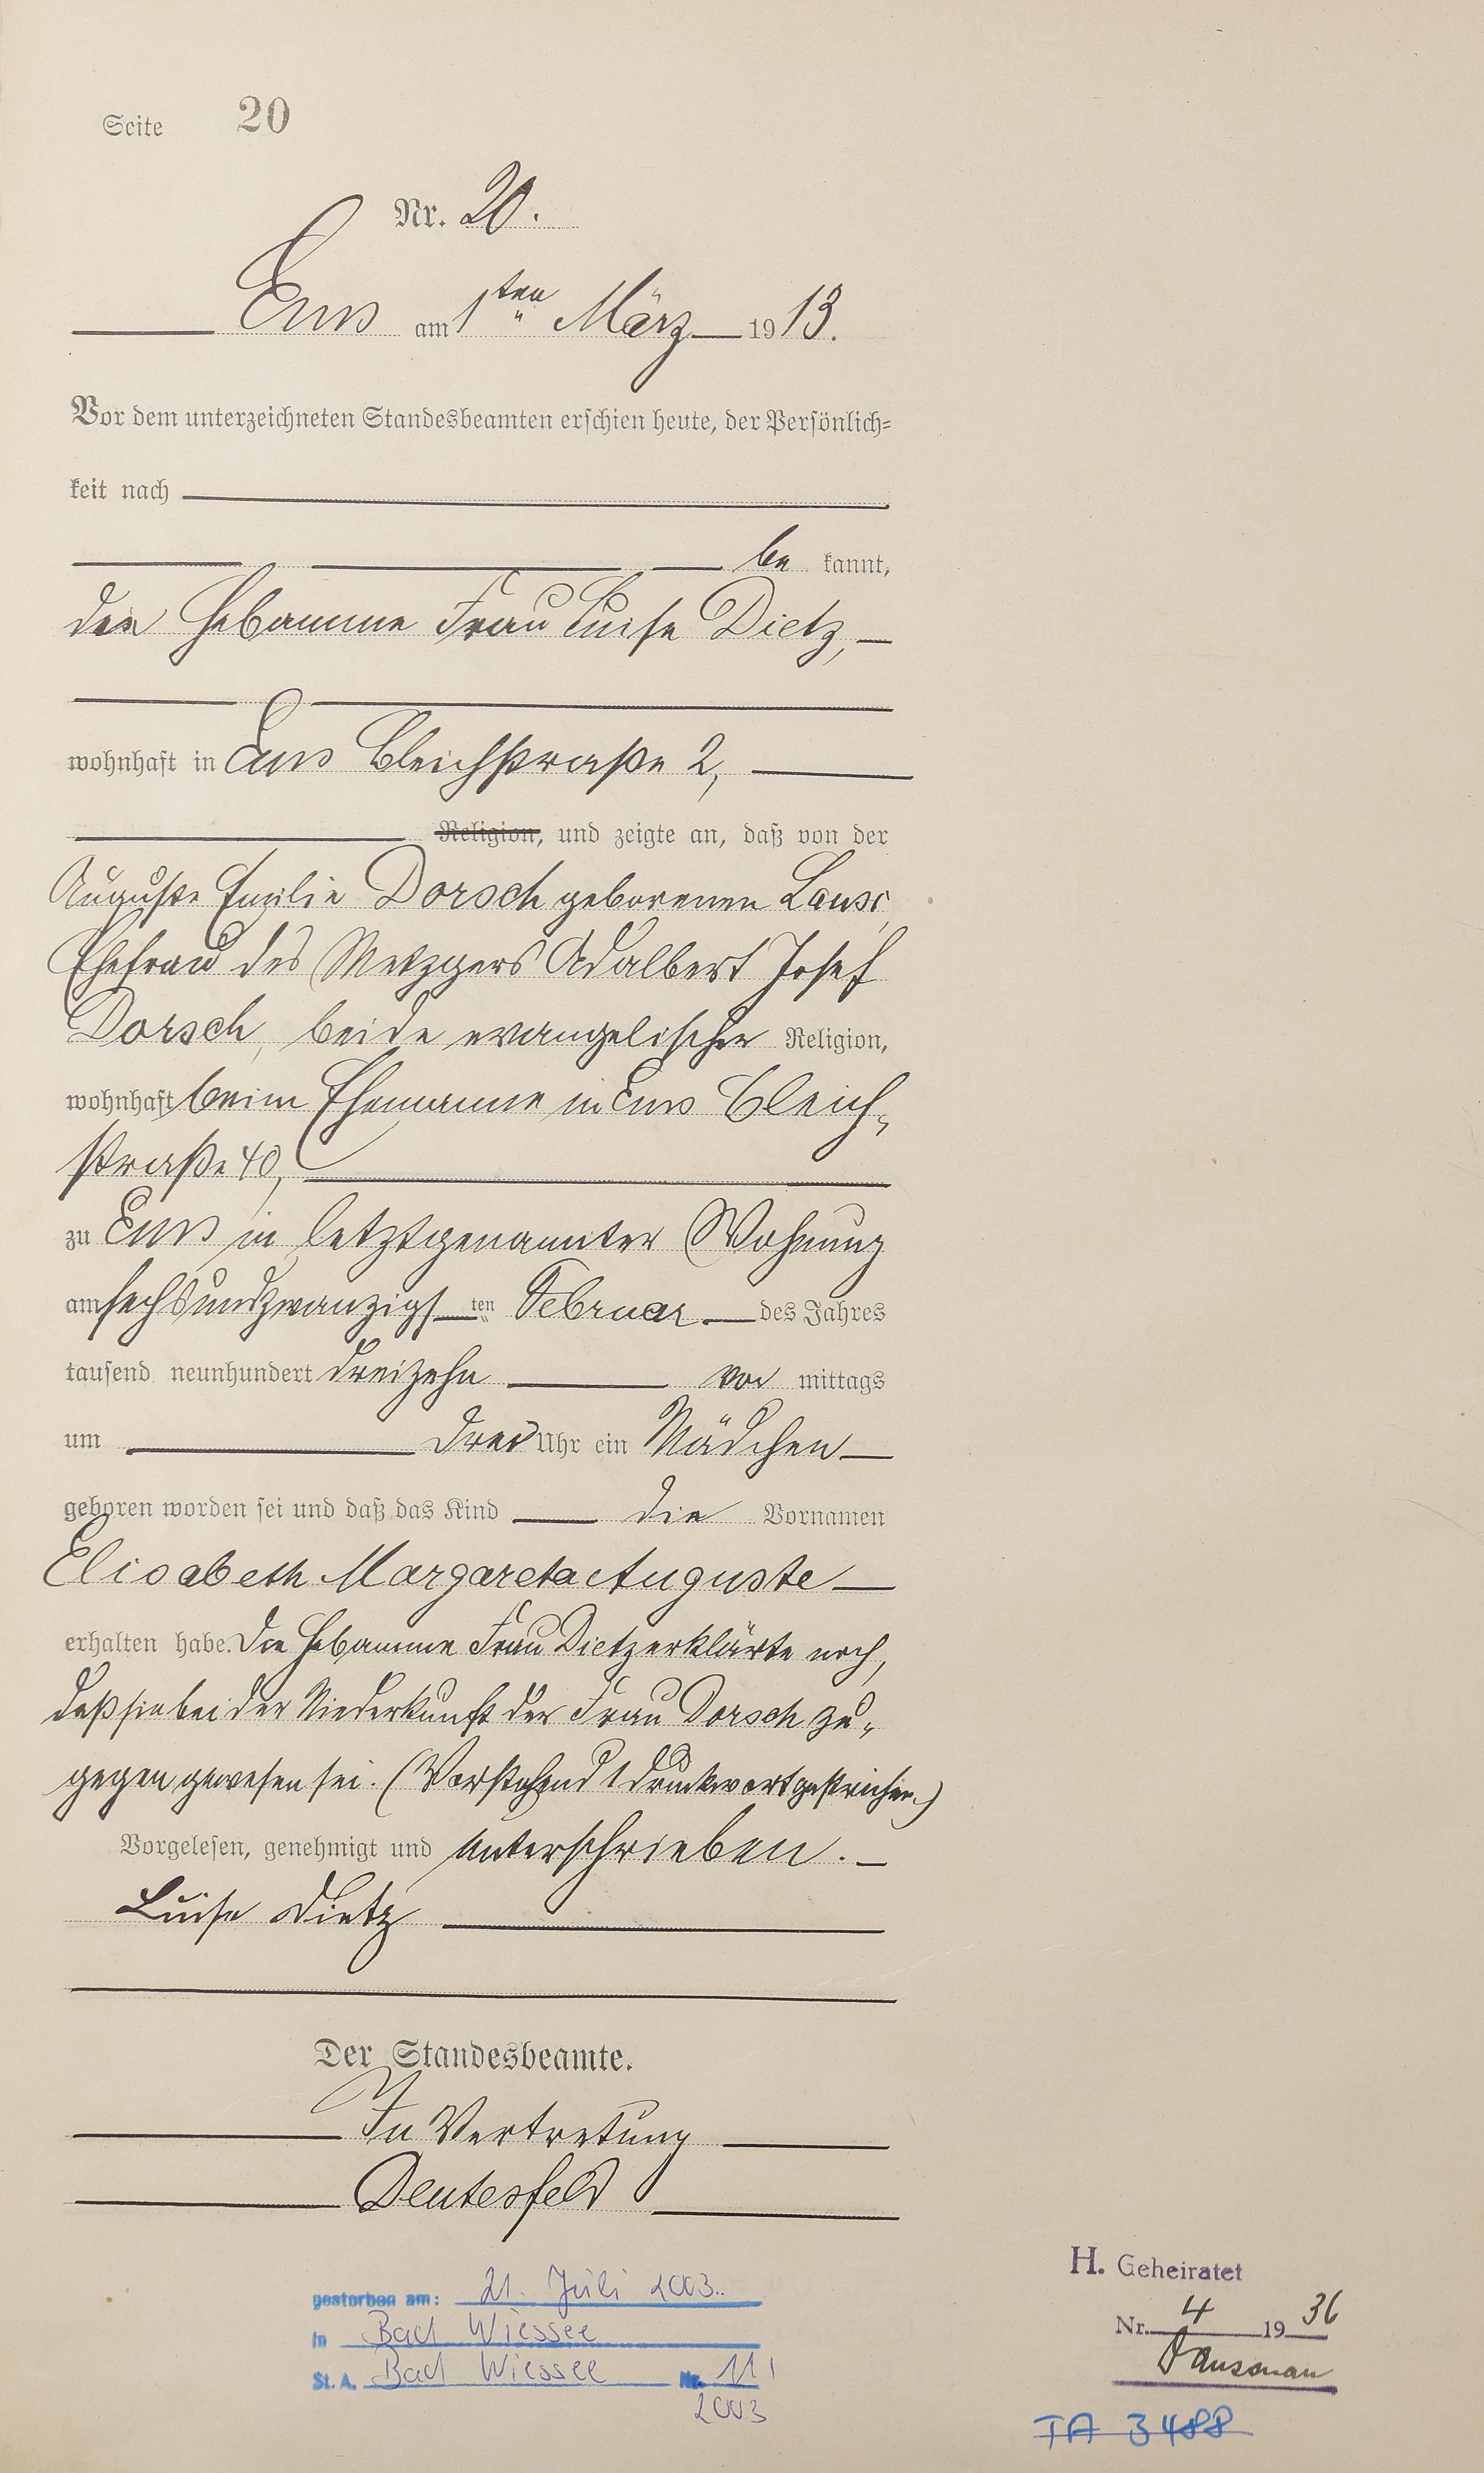 Seite 20
Nr. 20.
Ems am 1ten März 1913.
Vor dem unterzeichneten Standesbeamten erschien heute, der Persönlich=
keit nach
be kannt,
die Hebamme Frau Luise Dietz,
wohnhaft in Ems Bleichstraße 2,
Religion, und zeigte an, daß von der
Auguste Emilie Dorsch geborenen
Ehefrau des Metzgers Adalbert Josef
Dorsch, beide evangelischer Religion,
wohnhaft beim Ehemanne in Ems Bleich-
straße 40,
zu Ems in letztgenannter Wohnung
am sechsundzwanzigsten Februar des Jahres
tausend neunhundert dreizehn vor mittags
um drei Uhr ein Mädchen
geboren worden sei und daß das Kind die Vornamen
Elisabeth Margareta Auguste
erhalten habe. Die Hebamme Frau Dietz erklärte noch,
daß sie bei der Niederkunft der Frau Dorsch zu-
gegen gewesen sei. (Vorstehend 1 Druckwort gestrichen.)
Vorgelesen, genehmigt und unterschrieben.
Luise Dietz
Der Standesbeamte.
In Vertretung
Deutesfeld
gestorben am: 21. Juli 2003.
in Bad Wiessee
St. A. Bad Wiessee Nr. 11/
2003
H. Geheiratet
Nr. 4 1936
Dausenau
TA 3488